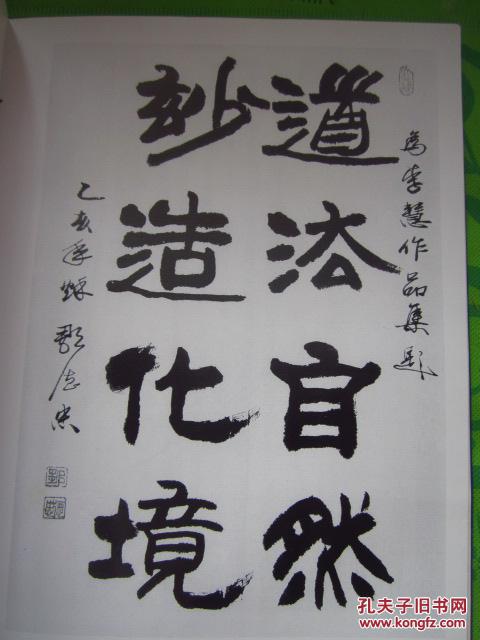 為李慧作品集題
道法自然
玅造化境
乙亥年
孔夫子旧书网
www.kongfz.com